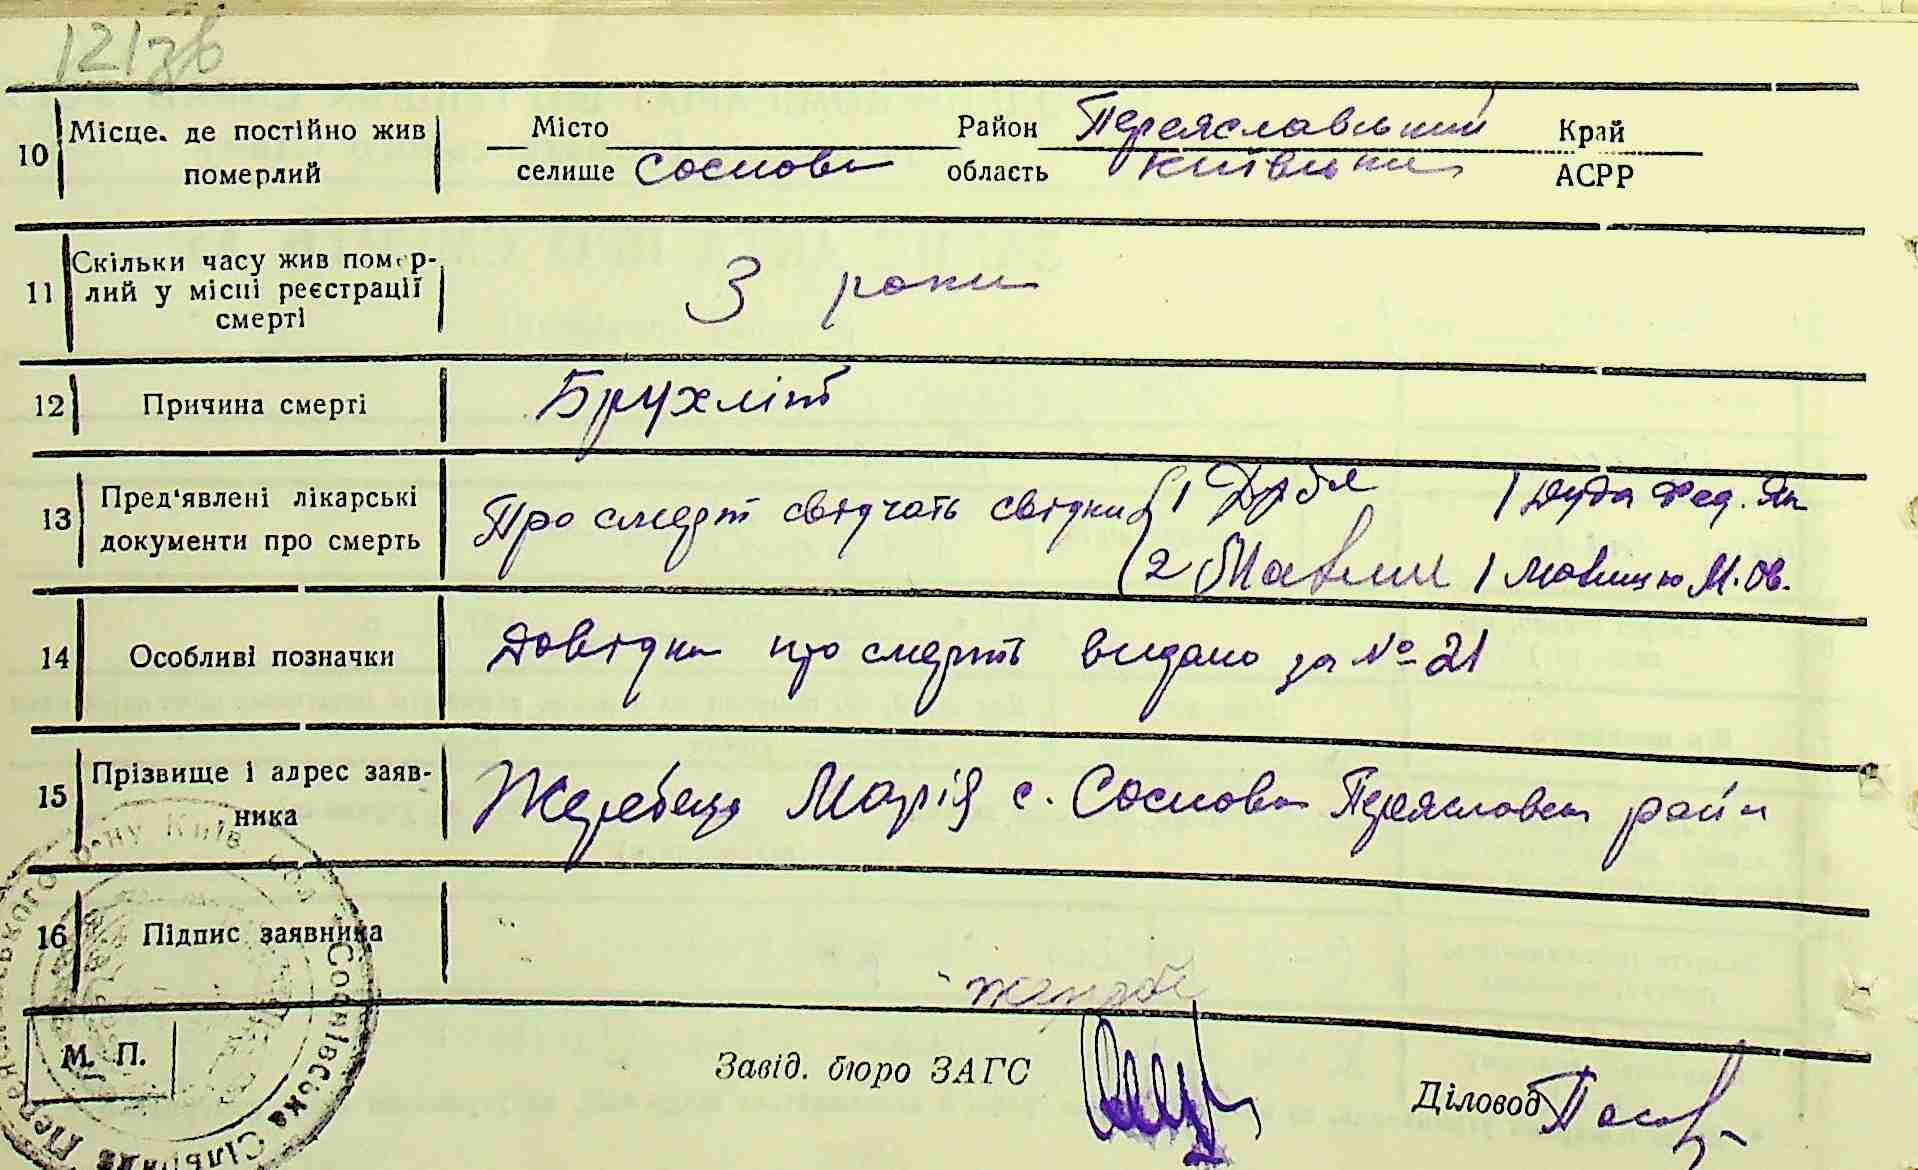 121зв
10 Місце, де постійно жив померлий
Місто Район Переяславський Край
селище Соснова область Київська АСРР
11 Скільки часу жив помер-
лий у місці реєстрації
смерті
3 роки
12 Причина смерті Брухліт
13 Пред'явлені лікарські
документи про смерть
Про смерт свідчать свідки 1 Дуба / Дуда Фед. Як
2 Мавни / М. Ов.
14 Особливі позначки Довідка про смерть видано за № 21
15 Прізвище і адрес заяв-
ника
Жеребеца Марія с. Соснова Переяславск район
16 Підпис заявника
Жереб
М. П.
Завід. бюро ЗАГС
Діловод
Соснівська Сільрада